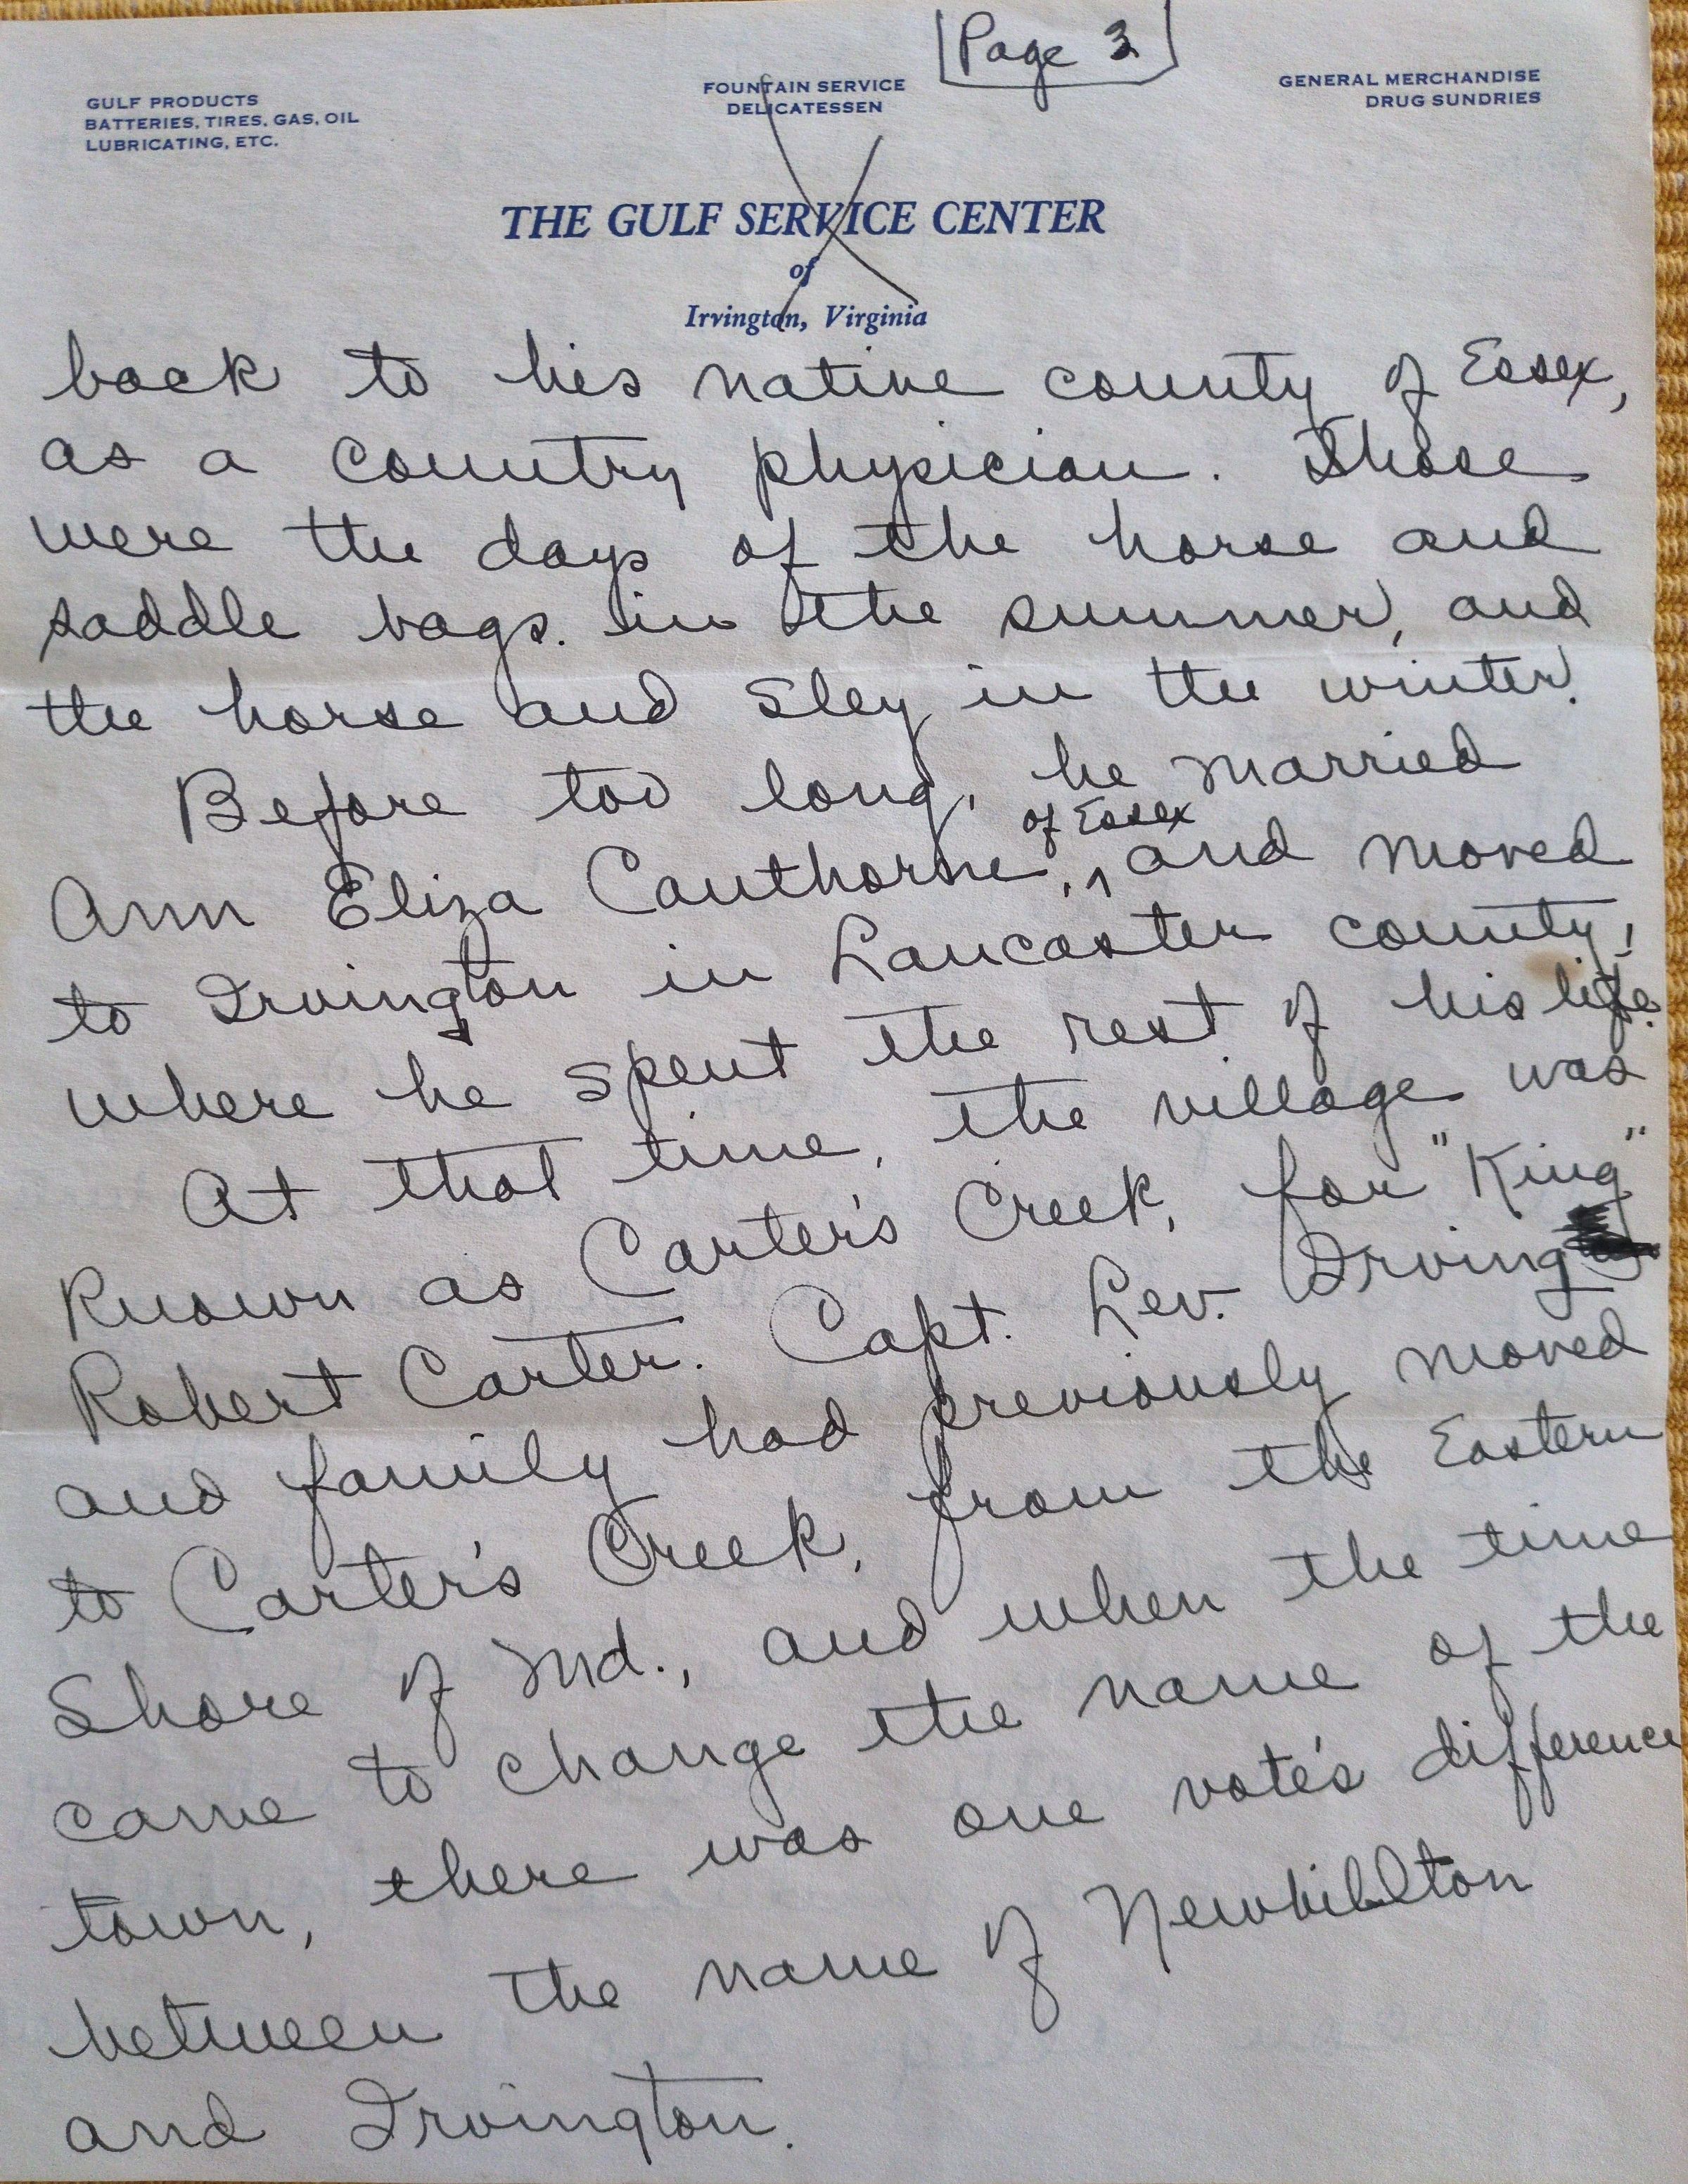 Page 3
GULF PRODUCTS
BATTERIES, TIRES, GAS, OIL
LUBRICATING, ETC.
FOUNTAIN SERVICE
DELICATESSEN
GENERAL MERCHANDISE
DRUG SUNDRIES
THE GULF SERVICE CENTER
of
Irvington, Virginia
back to his native county of Essex,
as a country physician. Those
were the days of the horse and
saddle bags. in the summer, and
the horse and sley in the winter.
Before too long, he married
of Essex
Ann Eliza Cauthorne, ^ and moved
to Irvington in Lancaster county,
where he spent the rest of his life.
At that time, the village was
known as Carter's Creek, for "King"
Robert Carter. Capt. Lev. Irving
and family had previously moved
to Carter's Creek, from the Eastern
Shore of Md., and when the time
came to change the name of the
town, there was one vote's difference
between the name of Newbillton
and Irvington.